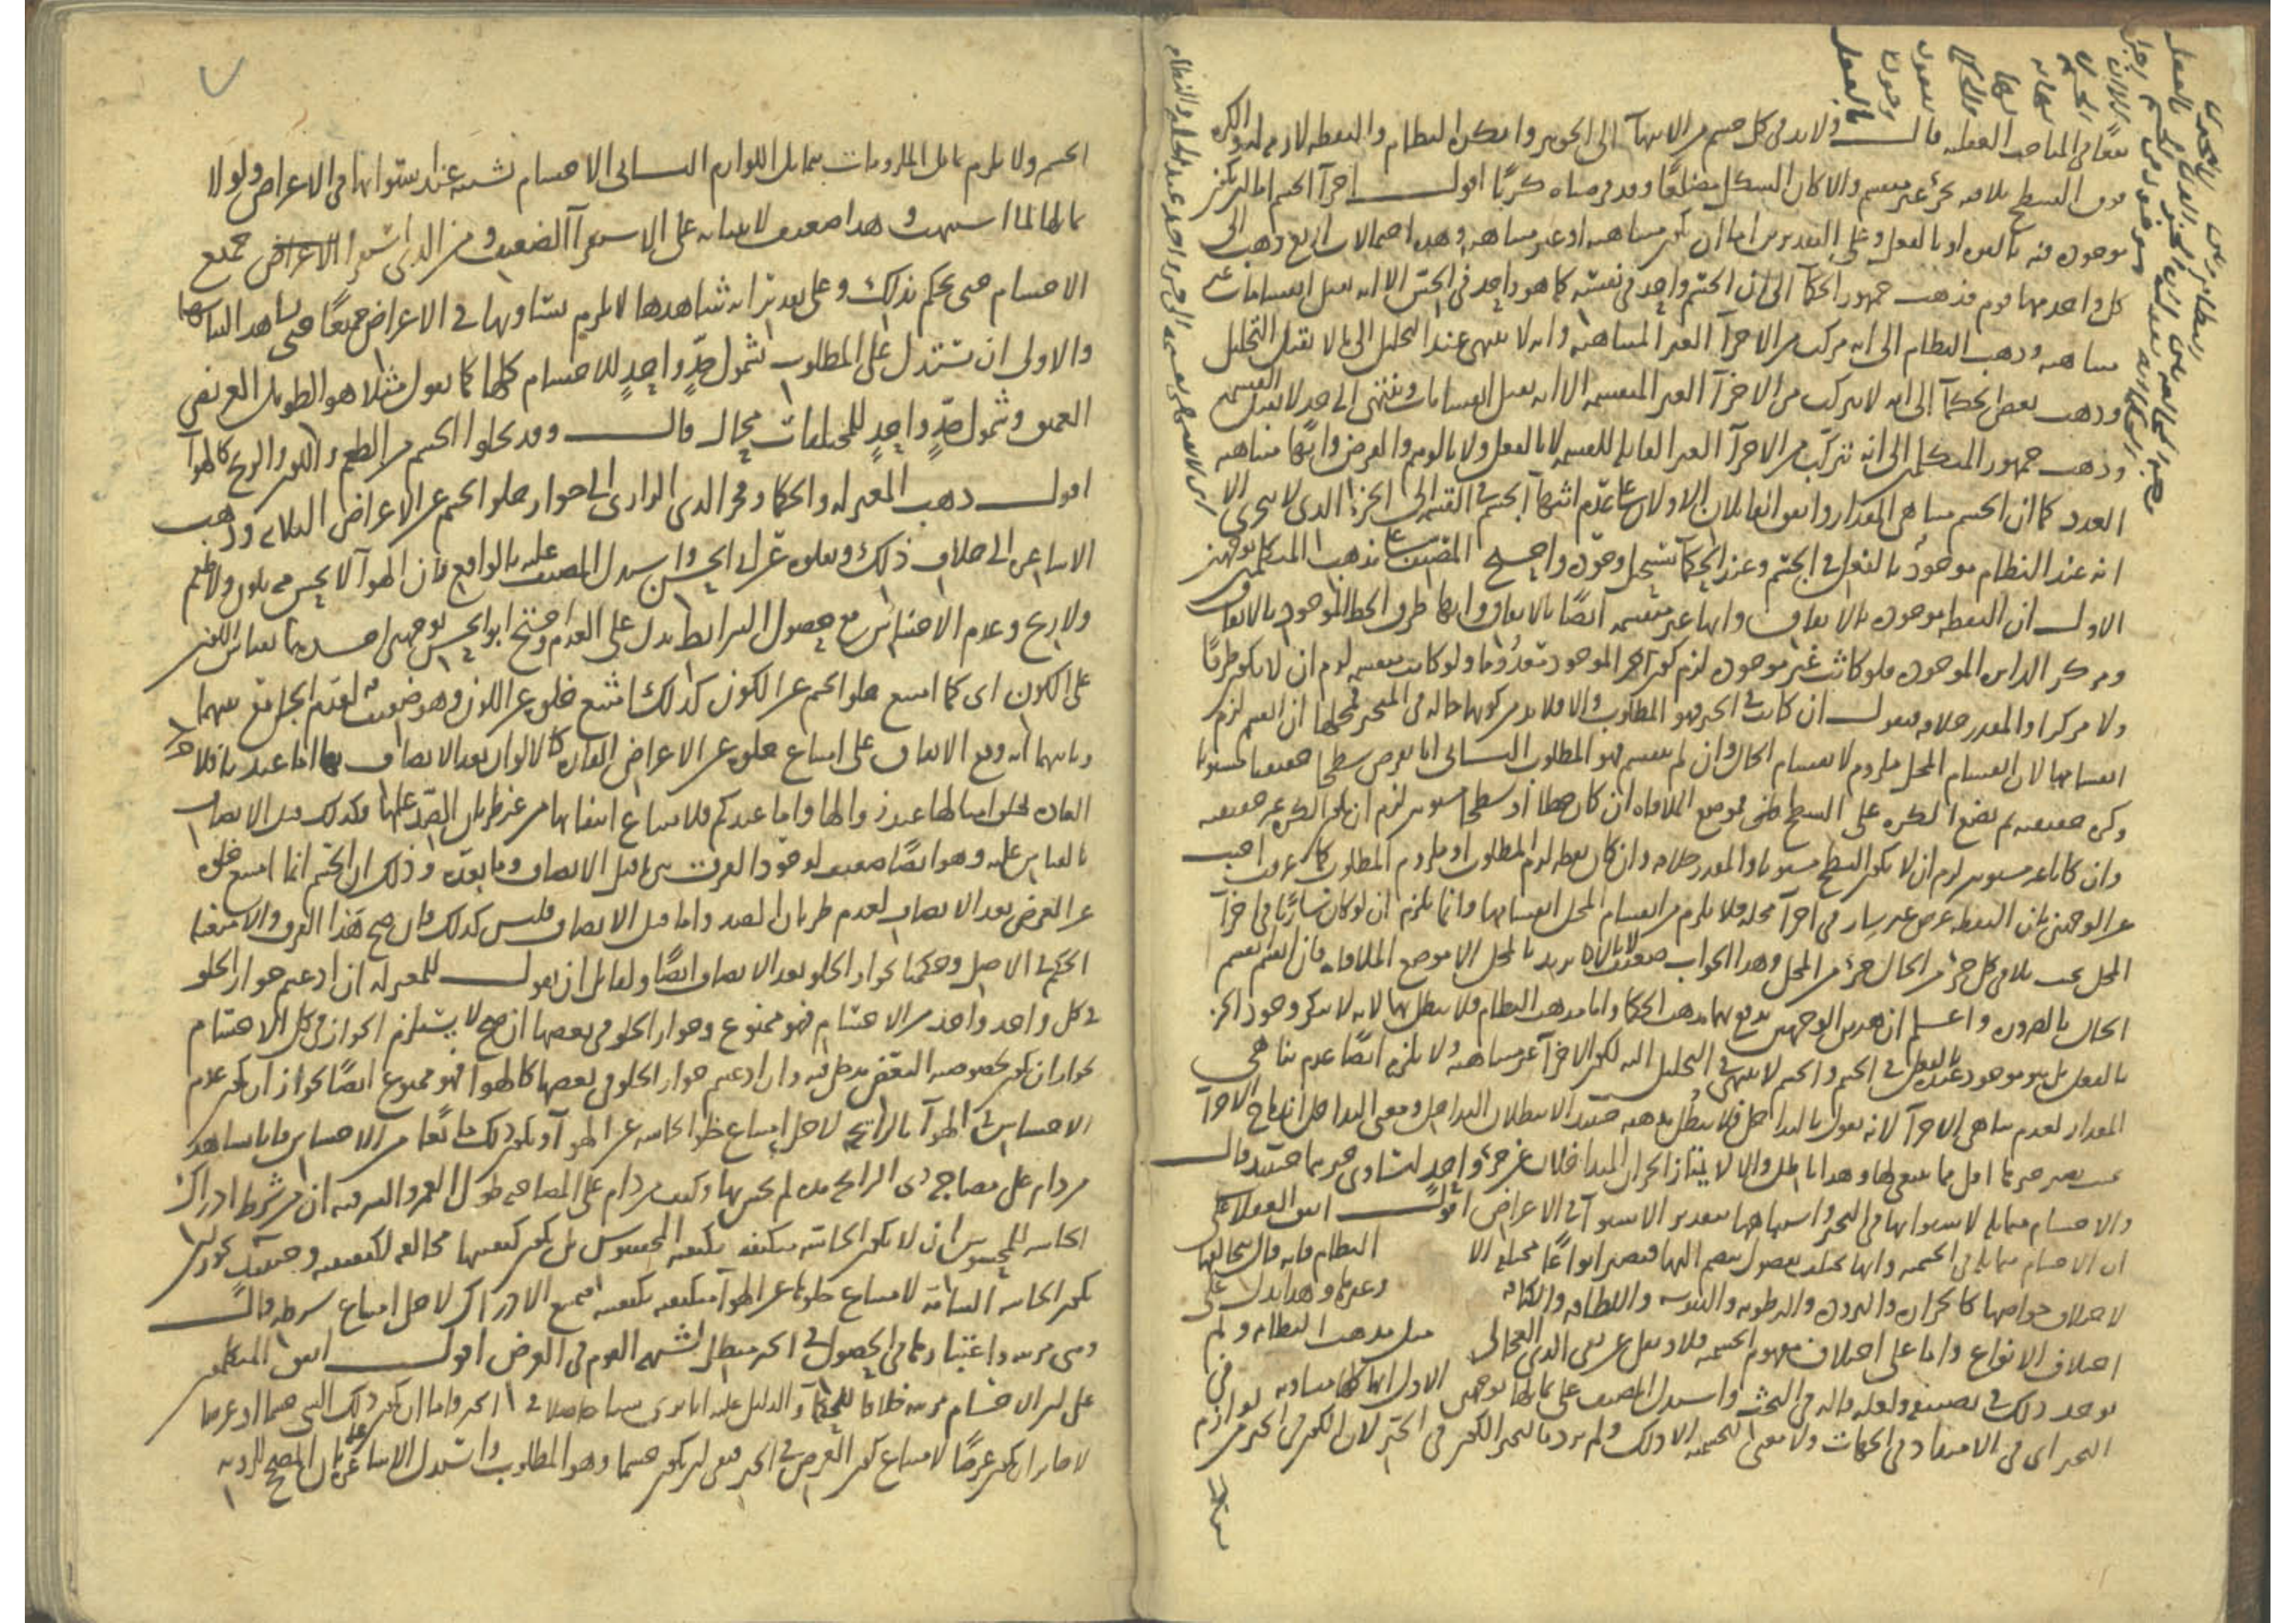 نفعًا في المباحث العقلية قال ولابد في كل جسم من الانتهاء الى الجوهر وانكره النظام والنقطة لازمة له والكرة
فوق السطح تلاقيه بجزء غير منقسم والا لكان الشكل مضلعًا وقد فرضناه كريًا اقول اجزاء الجسم اما ان تكون
موجودة فيه بالقوة او بالفعل وعلى التقديرين اما ان تكون متناهية او غير متناهية وهذه احتمالات اربع ذهب الى
كل واحد منها قوم فذهب جمهور الحكماء الى ان الجسم واحد في نفسه كما هو واحد في الحس الا انه يقبل انقسامات غير
متناهية وذهب النظام الى انه مركب من الاجزاء الغير المتناهية وانه لا ينتهي عند التحليل الى ما لا يقبل التحليل
وذهب بعض الحكماء الى انه لا يتركب من الاجزاء الغير المنقسمة الا انه يقبل انقسامات وينتهي الى حد لا يقبل القسمة
وذهب جمهور المتكلمين الى انه تتركب من الاجزاء الغير القابلة للقسمة لا بالفعل ولا بالوهم والفرض وانها متناهية
العدد كما ان الجسم متناهي المقدار واتفق القائلان الاولان على عدم انتهاء الجسم في القسمة الى الجزء الذي لا يتجزى الا
انه عند النظام موجود بالفعل في الجسم وعند الحكماء يستحيل وجوده واحتج المصنف على مذهب المتكلمين بوجهين
الاول ان النقطة موجودة بالاتفاق وانها غير منقسمة ايضًا بالاتفاق وانها طرف الخط الموجود بالاتفاق
ومركز الدائرة الموجودة فلو كانت غير موجودة لزم كون الموجود معدومًا ولو كانت منقسمة لزم ان لا يكون طرفًا
ولا مركزا والمقدر خلافه فنقول ان كانت في الحيز فهو المطلوب والا فلابد من كونها حالة في المتحيز فمحلها ان انقسم لزم
انقسامها لان انقسام المحل ملزوم لانقسام الحال وان لم ينقسم فهو المطلوب الثاني انا نفرض سطحا حقيقيا مستويا
وكرة حقيقية ثم نضع الكرة على السطح فموضع الملاقاة ان كان خطا او سطحا مستويين لزم ان تكون الكرة غير حقيقية
وان كانا غير مستويين لزم ان لا يكون السطح مستويا والمقدر خلافه وان كان نقطة لزم المطلوب او ملزوم المطلوب كما عرفت اجيب
عن الوجهين بان النقطة عرض غير سار في اجزاء محله فلا يلزم من انقسام المحل انقسامها وانما يلزم ان لو كان ساريًا في اجزاء
المحل بحيث يلاقي كل جزء من الحال جزء من المحل وهذا الجواب ضعيف لانا لا نريد بالمحل الا موضع الملاقاة فان انقسم انقسم
الحال بالضرورة واعلم ان هذين الوجهين يدفع بهما مذهب الحكما واما مذهب النظام فلا يبطل بهما لانه لا ينكر وجود الجزء
بالفعل بل هو موجود عنده بالفعل في الجسم والجسم لا ينتهي في التحليل اليه لكون الاجزاء غير متناهية ولا يلزمه ايضًا عدم تناهي
المقدار لعدم تناهي الاجزاء لانه يقول بالتداخل فلا يبطل مذهبه حينئذ الا ببطلان التداخل ومعنى التداخل اندماج الاجزاء
بحيث يصير حيزها اقل مما ينبغي لها وهذا باطل والا لا يمتاز الجزان المتداخلان عن جزء واحد لتساوي حيزهما حينئذ قال
والاجسام متماثلة لاستوائها في التحيز واشتباهها بتقدير الاستواء في الاعراض اقول اتفق العقلاء على
ان الاجسام متماثلة في الجسمية وانها تختلف بفصول ينضم اليها فتصير انواعًا مختلفة الا النظام فانه قال بتخالفها
لاختلاف خواصها كالحرارة والبرودة والرطوبة واليبوسة واللطافة والكثافة وغيرها وهذا يدل على
اختلاف الانواع واما على اختلاف مفهوم الجسمية فلا ونقل عن نفي الدين العجالي مثل مذهب النظام ولم
يوجد ذلك في تصنيفه ولعله قاله في البحث واستدل المصنف على تماثلها بوجهين الاول انها كلها متساوية في
التحيز اي في الامتداد في الجهات ولا معنى للجسمية الا ذلك ولم يرد بالتحيز الكون في الحيز لان الكون في الحيز من لوازم
الجسم ولا يلزم تماثل الملزومات بتماثل اللوازم الثاني الاجسام تشتبه عند استوائها في الاعراض ولولا
تماثلها لما اشتبهت وهذا ضعيف لابتنائه على الاستقراء الضعيف ومن الذي استقرأ الاعراض جميع
الاجسام حتى يحكم بذلك وعلى تقدير انه شاهدها لا يلزم تساويها في الاعراض جميعًا حتى يشاهد التباسها
والاولى ان تستدل على المطلوب بشمول حدٍّ واحدٍ للاجسام كلها كما نقول مثلا هو الطويل العريض
العميق وشمول حدٍّ واحدٍ للمختلفات محال قال وقد يخلوا الجسم من الطعم واللون والريح كالهواء
اقول ذهب المعتزلة والحكما وفخر الدين الرازي الى جواز خلو الجسم عن الاعراض الثلاثة وذهب
الاشاعرة الى خلاف ذلك ونقلوه عن ابي الحسن واستدل المصنف عليه بالواقع فان الهواء لا يحس فيه بلون ولا طعم
ولا ريح وعدم الاحساس مع حصول الشرائط يدل على العدم واحتج ابو الحسن بوجهين احدهما بقياس اللون
على الكون اي كما امتنع خلو الجسم عن الكون كذلك امتنع خلوه عن اللون وهو ضعيف لعدم الجامع بينهما
وثانيهما انه وقع الاتفاق على امتناع خلوه عن الاعراض القارة كالالوان بعد الاتصاف بها اما عندنا فلاجراء
العادة بخلق امثالها عند زوالها واما عندكم فلامتناع انتفائها من غير طريان الضد عليها فكذلك قبل الاتصاف
بالقياس عليه وهو ايضًا ضعيف لوجود الفرق بين ما قبل الاتصاف وما بعده وذلك ان الجسم انما امتنع خلوه
عن العرض بعد الاتصاف لعدم طريان الضد واما قبل الاتصاف فليس كذلك فان صح هذا الفرق والا منعنا
الحكم في الاصل وحكمنا بجواز الخلو بعد الاتصاف ايضًا ولقائل ان يقول للمعتزلة ان ادعيتم جواز الخلو
في كل واحد واحد من الاجسام فهو ممنوع وجواز الخلو في بعضها ان صح لا يستلزم الجواز في كل الاجسام
لجواز ان يكون لخصوصية البعض مدخل فيه وان ادعيتم جواز الخلو في بعضها كالهواء فهو ممنوع ايضًا لجواز ان يكون عدم
الاحساس في الهواء بالرائحة لاجل امتناع خلو الحاسة عن الهواء ويكون ذلك مانعًا من الاحساس فانا نشاهد
من دام على مصاحبة ذي الرائحة مدة لم يحس بها وكيف من دام على المصاحبة طول العمر والسر فيه ان من شرط ادراك
الحاسة للمحسوس ان لا تكون الحاسة متكيفة بكيفية المحسوس بل يكون كيفيتها مخالفة لكيفيته وحينئذ يجوز ان
تكون الحاسة الشامة لامتناع خلوها عن الهواء متكيفة بكيفيته فيمتنع الادراك لاجل امتناع شرطه قال
وهي مرئية واعتبارها في الحصول في الحيز مبطل لشبهة القوم في العرض اقول اتفق المتكلمون
على ان الاجسام مرئية خلافا للحكماء والدليل عليه انا نرى شيئا حاصلا في الحيز فاما ان يكون ذلك الشي جسما او عرضا
لا جائز ان يكون عرضًا لامتناع كون العرض في الحيز فبقي ان يكون جسما وهو المطلوب واستدل الاشاعرة على بان المصحح للرؤية